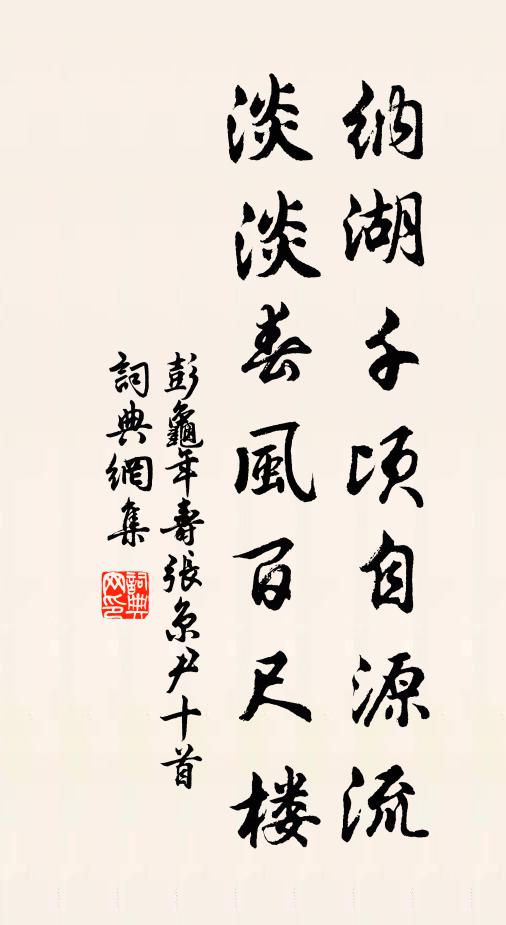 纳湖千顷自源流
淡淡春風百尺楼
彭龜年壽張京尹十首
詞典網集
詞典网印